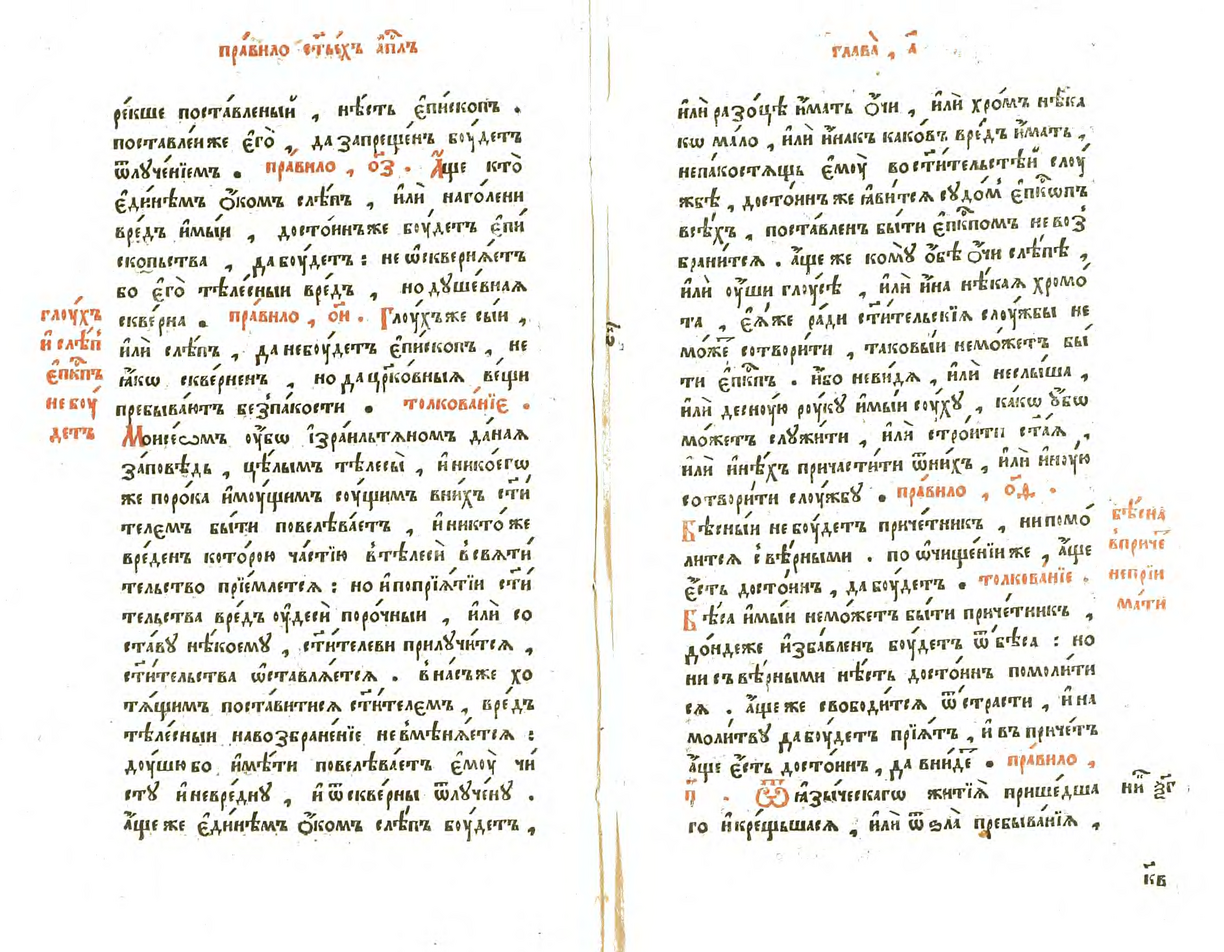 пра́вило ст҃ы́хъ а҆пⷭ҇лъ
ре́кше поста́вленый , нѣ́сть є҆пи́скопъ .
поставле́и же є҆го̀ , да запреще́нъ бꙋ́детъ
ѿлꙋче́нїемъ . пра́вило , о҃з . А҆́ще кто̀
є҆ди́нѣмъ ѻ҆́комъ слѣ́пъ , и҆лѝ наго́лени
вре́дъ и҆мы́и , досто́инъ же бꙋ́детъ є҆пи
скопьства , да бꙋ́детъ : не ѡ҆скверня́етъ
бо є҆го̀ тѣле́сныи вре́дъ , но дꙋше́вная
скве́рна . пра́вило , о҃и . Глꙋ́хъ же сы́и ,
и҆лѝ слѣ́пъ , да небꙋ́детъ є҆пи́скопъ , не
ꙗ҆́кѡ скве́рненъ , но да цр҃ко́вныѧ ве́щи
пребыва́ютъ без̾па́кости . толкова́нїе .
Мѡисе́ѡмъ ᲂу҆́бѡ і҆зра́ильтѧномъ да́наѧ
за́повѣдь , цѣ́лымъ тѣлесы̀ , и҆ нико́егѡ
же поро́ка и҆мꙋ́щимъ сꙋ́щимъ вни́хъ ст҃и
телємъ бы́ти повелѣва́етъ , и҆ никто́ же
вре́денъ кото́рою ча́стїю в̾тѣлесѝ в̾свѧти
тельство прїе́млетсѧ : но и҆ попрїѧ́тїи ст҃и
тельства вре́дъ ᲂу҆десѝ поро́чныи , и҆лѝ со
ста́вꙋ нѣ́коемꙋ , ст҃и́телеви прилꙋчи́тсѧ ,
ст҃и́тельства ѡ҆ставлѧ́етсѧ . в̾на́съ же хо
тѧ́щимъ поста́витисѧ ст҃и́телємъ , вре́дъ
тѣле́сныи навозбране́нїе не в̾мѣнѧ́етсѧ :
дꙋ́шю бо и҆мѣ́ти повелѣва́етъ є҆мꙋ̀ чи́
стꙋ и҆ невре́днꙋ , и҆ ѿ скве́рны ѿлꙋче́нꙋ .
а҆́ще же є҆ди́нѣмъ ѻ҆́комъ слѣ́пъ бꙋ́детъ ,
глꙋ́хъ
и҆ слѣ́пⸯ
є҆пⷭ҇кпъ
не бꙋ́
детъ
глава̀ , а҃
и҆лѝ разо́цѣ и҆́мать ѻ҆́чи , и҆лѝ хро́мъ нѣ́ка
кѡ ма́ло , и҆лѝ и҆на́къ како́въ вре́дъ и҆́мать ,
непа́костѧщь є҆мꙋ̀ во ст҃и́тельстѣи слꙋ́
жбѣ , досто́инъ же ꙗ҆ви́тсѧ сꙋдо́м є҆пⷭ҇кѡпъ
всѣ́хъ , поста́вленъ бы́ти є҆пⷭ҇кпом не воз̾
брани́тсѧ . а҆́ще же комꙋ̀ ѻ҆́бѣ ѻ҆́чи слѣ́пѣ ,
и҆лѝ ᲂу҆́ши глꙋ́сѣ , и҆лѝ и҆на нѣ́каѧ хромо
та̀ , є҆ѧ́же ради ст҃и́тельскїѧ слꙋ́жбы не
мо́же сотвори́ти , таковы́и немо́жетъ бы́
ти є҆пⷭ҇кпъ . и҆́бо неви́дѧ , и҆лѝ неслы́ша ,
и҆лѝ деснꙋ́ю рꙋ́кꙋ и҆мы́и сꙋ́хꙋ , ка́кѡ ᲂу҆́бѡ
мо́жетъ слꙋжи́ти , и҆лѝ стро́ити ст҃а́ѧ ,
и҆лѝ и҆нѣ́хъ причасти́ти ѿни́хъ , и҆лѝ и҆нꙋ́ю
сотвори́ти слꙋ́жбꙋ . пра́вило , о҃ѳ .
Бѣ́сныи не бꙋ́детъ приче́тникъ , ни помо́
литсѧ с̾вѣ́рными . по ѡ҆чище́нїи же , а҆́ще
є҆́сть досто́инъ , да бꙋ́детъ . толкова́нїе .
Бѣ́са и҆мы́и немо́жетъ бы́ти приче́тникъ ,
до́ндеже и҆зба́вленъ бꙋ́детъ ѿ бѣ́са : но
ни съ вѣ́рными нѣ́сть досто́инъ помоли́ти
сѧ . а҆́ще же свободи́тсѧ ѿ стра́сти , и҆ на
моли́твꙋ да бꙋ́детъ прїѧ́тъ , и҆ въ приче́тъ
а҆́ще є҆́сть досто́инъ , да вни́де . пра́вило ,
п҃ . Ѿ ꙗ҆зы́ческагѡ житїѧ̀ прише́дша
го и҆ крещьшасѧ , и҆лѝ ѿ ѕла̀ пребыва́нїѧ ,
бѣ́сна
в̾приче́
непрїи
ма́ти
ни҃ ѯ҃г
к҃в